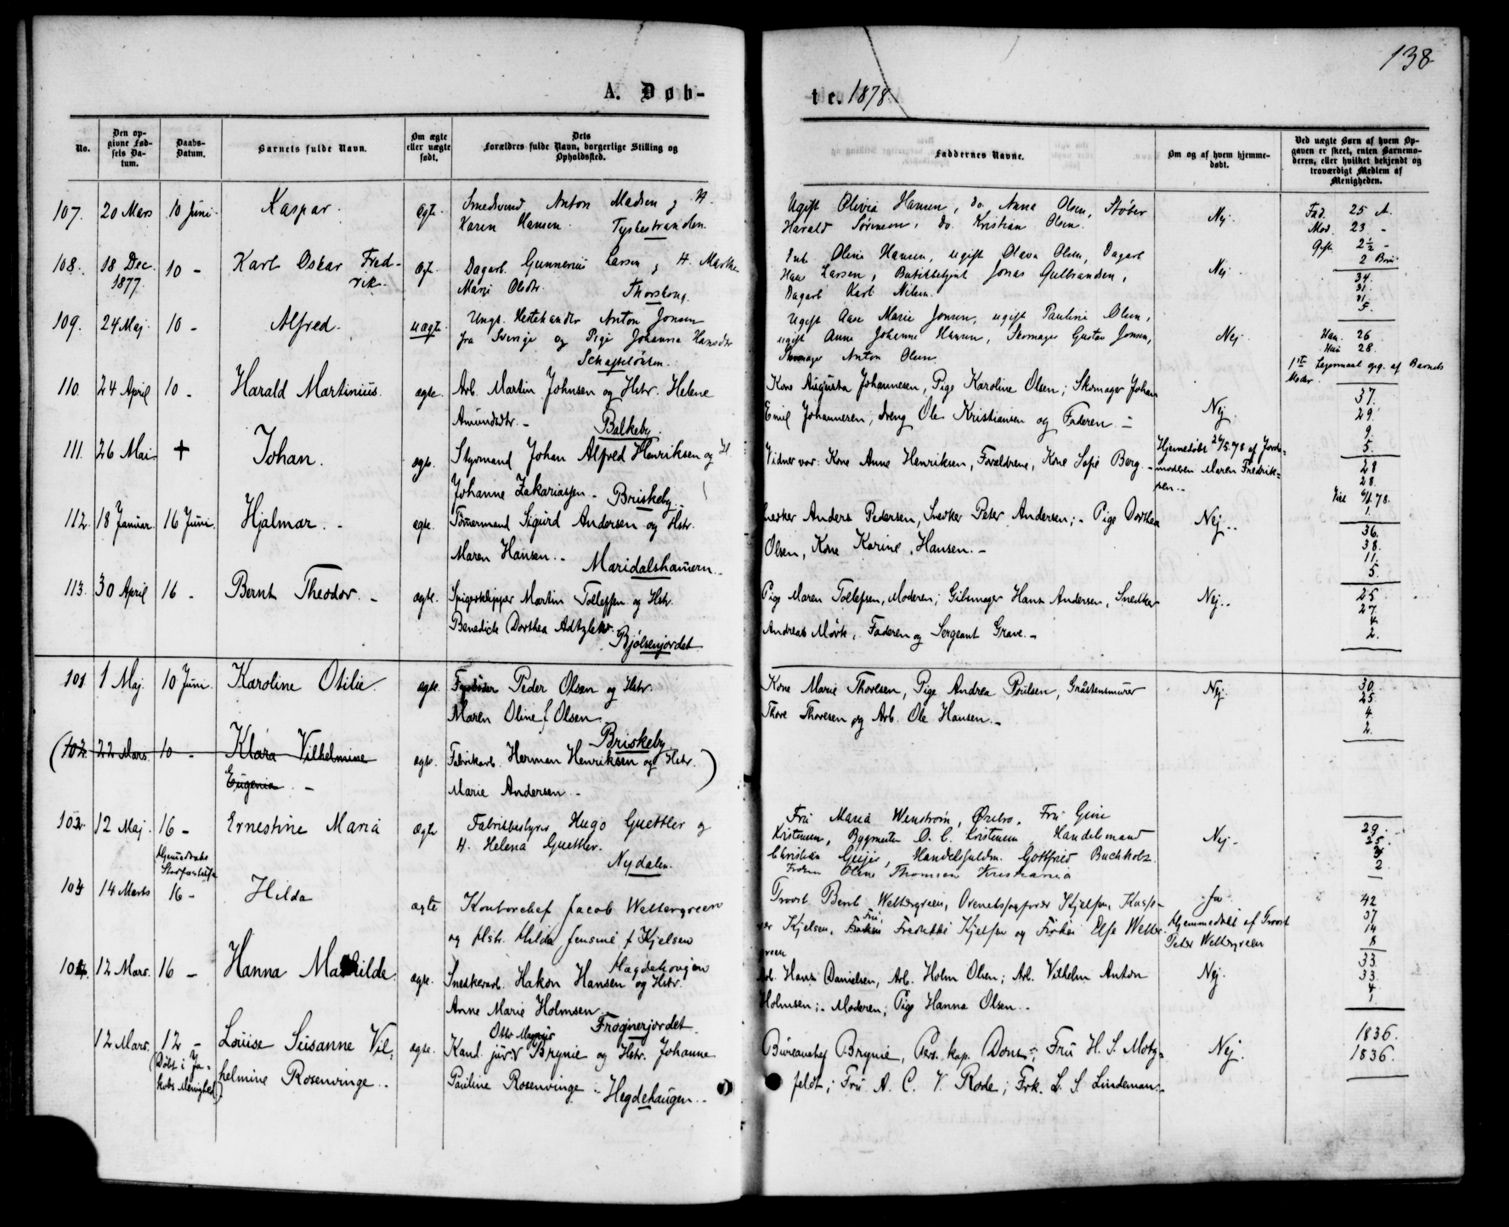 138
A. Døb-
te. 1878.
No.
Den op-
givne Fød-
sels Da-
tum.
Daabs-
Datum.
Barnets fulde Navn.
Om ægte
eller uægte
født.
Dets
Forældres fulde Navn, borgerlige Stilling og
Opholdssted.
Faddernes Navne.
Om og af hvem hjemme-
døbt.
Ved uægte Børn af hvem Op-
gaven er skeet, enten Barnemo-
deren, eller hvilket bekjendt og
troværdigt Medlem af
Menigheden.
107. 20 Mars 10 Juni Kaspar. ægte. Smedsvend Anton Madsen og H.
Karen Hansen. Tyskestranden.
Ugift Olivia Hansen, do. Anne Olsen, Støber
Harald Sørensen, do. Kristian Olsen. Nej. Fad. 25 A.
Mod. 23 -
Gift. 2½ -
2 Brn
108. 18 Dec. 1877 10 - Karl Oskar Fred-
rik. ægt. Dagarb. Gunnerius Larsen og H. Marthe
Marie Olsdtr. Thorshoug.
Oline Hansen, ugift Olava Olsen, Dagarb.
Hans Larsen, Butikbetjent Jonas Gulbrandsen,
Dagarb. Karl Nilsen. Nej. 34.
31.
11.
5.
109. 24 Maj. 10 - Alfred. uægte. Ungk. Anton Jonsen
fra Sverige og Pige Johanna Hansdtr.
Schafteløkken.
Ugift Aase Marie Jonsen, ugift Pauline Olsen,
ugift Anne Johanne Hansen, Skomager Gustav Jonsen,
Skomager Anton Olsen. Nej. Han. 26
Hun 28.
1ste Lejermaal opg. af Barnets
Moder
110. 24 April 10 - Harald Martinius. ægte. Arb. Martin Johnsen og Hstr. Helene
Amundsdtr. - Balkeby.
Kone Augusta Johannesen, Pige Karoline Olsen; Skomager Johan
Emil Johannesen, dreng Ole Kristiansen og Faderen - Nej. 37.
29.
9.
5.
111. 26 Mai + Johan. ægte. Styrmand Johan Alfred Henriksen og H.
Johanne Zakariassen - Briskeby.
Vidner var: Kone Anne Henriksen, Forældrene, Kone Sofie Berg. -
Hjemmedøbt 26/5.78 af Jorde-
moderen Maren Fredrik-
sen. - 28
28.
1.
112. 18 Januar. 16 Juni. Hjalmar. - ægte. Tømermand Sigurd Andersen og Hstr.
Maren Hansen. - Maridalshamern. -
Snedker Anders Pedersen, Snedker Peter Andersen; - Pige Dorthea
Olsen, Kone Karine Hansen. - Nej. - 36.
38.
11.
5.
113. 30 April 16 - Bernt Theodor. - ægte. Spigerklipper Martin Tollefsen og Hstr.
Benedicte Dorthea
Bjølsenjordet
Pige Maren Tollefsen, Moderen; Gibsmager Hans Andersen, Snedker
Andreas Mørk, Faderen og Sergeant Grave. - Nej. - 25
27.
4.
2.
101 1 Maj. 10 Juni. Karoline Otilie. ægte. Peder Olsen og Hstr.
Maren Oline f. Olsen.
Briskeby
Kone Marie Thoresen, Pige Andrea Poulsen, Gråstensmurer
Thore Thoresen og Arb. Ole Hansen. - Nej. 30.
25.
4.
2.
(102. 22 Mars. 10 - Klara Vilhelmine
Eugenia - ægte. Fabrikarb. Herman Henriksen og Hstr.
Marie Andersen - )
102. 12 Maj. 16 - Ernestine Maria ægte Fabrikbestyrer Hugo Guettler og
H. Helena Guettler.
Nydalen.
Fru Maria Wenstrøm, Ørebro, Fru Gine
Kristensen, Bygmester O. C. Kristensen Handelsmand
Christian Geijer, Handelsfuldm. Gottfried Buchholz
Frøken Oline Thomsen Kristiania Nej. 29.
25.
2
103 14 Marts 16 - Hilda ægte Kontorchef Jacob Wettergreen
og Hstr. Hilda Jensine f. Kjelsen
Hægdehougen
Provst Bernt Wettergreen, Kjelsen,
Kjelsen, Fru Fredrikke Kjelsen og Frøken Else Wetter-
green Ja.
Hjemmedøbt af Provst
Peter Wettergreen 42
37
14
8
104. 12 Mars. 16 - Hanna Mathilde. ægte. Snekkerarb. Hakon Hansen og Hstr.
Anne Marie Holmsen.
Frognerjordet.
Arb. Hans Danielsen, Arb. Holm Olsen; Arb. Vilhelm Anton
Holmsen; - Moderen; Pige Hanna Olsen. - Nej. 33.
33.
4.
1.
12 Mars. 12 -
(Døbt i Ja-
kobs Menighed) Louise Susanne Vil-
helmine Rosenvinge. - ægte. Kand. jur. Otto Brynie og Hstr. Johanne
Pauline Rosenvinge - Hegdehaugen. -
Bureauchef Brynie, Pers. kap. Dons; Fru H. S. Motz-
feldt; Fru A. C. V. Rode; Frk. L. S. Lindeman. - Nej. 1836.
1836.